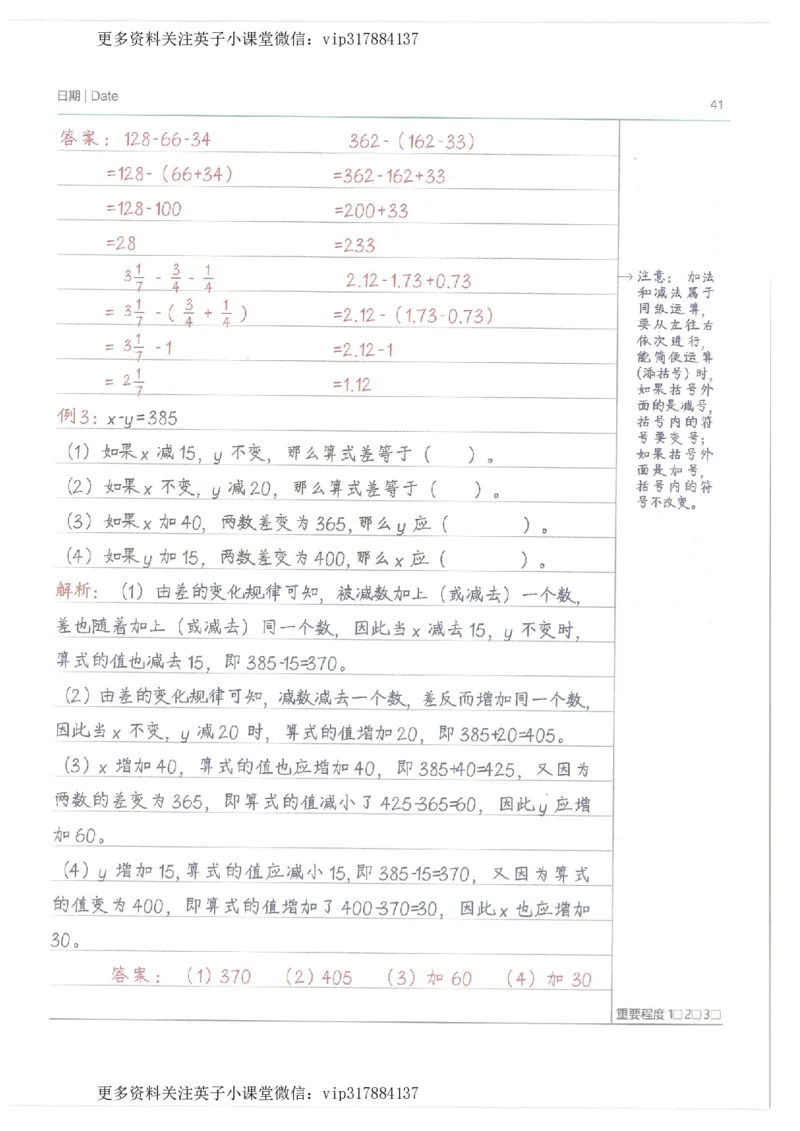 更多资料关注英子小课堂微信：vip317884137
日期 | Date
41
答案：128-66-34
=128-（66+34）
=128-100
=28
362-（162-33）
=362-162+33
=200+33
=233
3 1/7 - 3/4 - 1/4
= 3 1/7 -（3/4 + 1/4）
= 3 1/7 -1
= 2 1/7
2.12-1.73+0.73
=2.12-（1.73-0.73）
=2.12-1
=1.12
→注意：加法
和减法属于
同级运算，
要从左往右
依次进行，
能简便运算
(添括号)时，
如果括号外
面的是减号，
括号内的符
号要变号；
如果括号外
面是加号，
括号内的符
号不改变。
例3：x-y=385
（1）如果x减15，y不变，那么算式差等于（ ）。
（2）如果x不变，y减20，那么算式差等于（ ）。
（3）如果x加40，两数差变为365,那么y应（ ）。
（4）如果y加15，两数差变为400,那么x应（ ）。
解析：（1）由差的变化规律可知，被减数加上（或减去）一个数，
差也随着加上（或减去）同一个数，因此当x减去15，y不变时，
算式的值也减去15，即385-15=370。
（2）由差的变化规律可知，减数减去一个数，差反而增加同一个数，
因此当x不变，y减20时，算式的值增加20，即385+20=405。
（3）x增加40，算式的值也应增加40，即385+40=425，又因为
两数的差变为365，即算式的值减小了425-365=60，因此y应增
加60。
（4）y增加15,算式的值应减小15,即385-15=370，又因为算式
的值变为400，即算式的值增加了400-370=30，因此x也应增加
30。
答案：（1）370 （2）405 （3）加60 （4）加30
重要程度 1□ 2□ 3□
更多资料关注英子小课堂微信：vip317884137